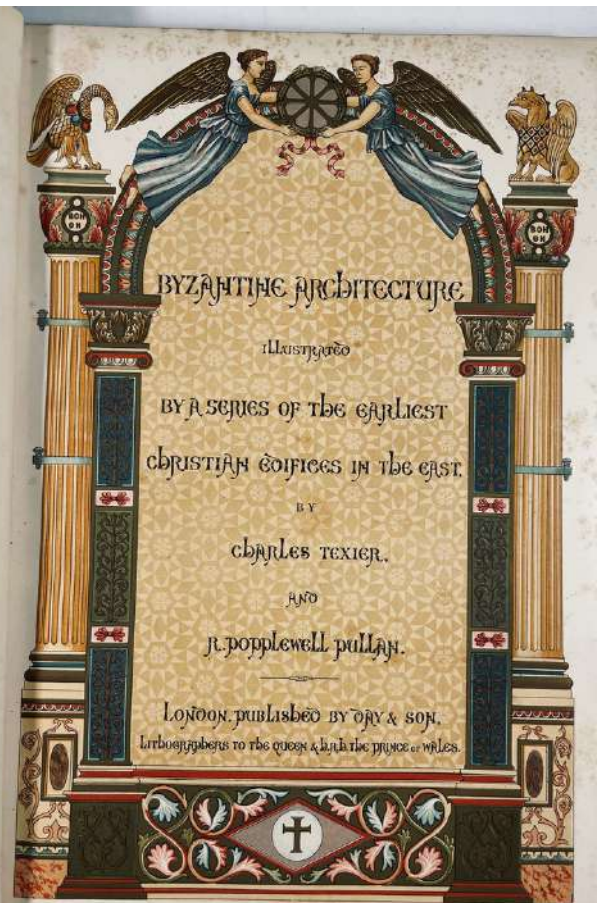 BYZANTINE ARCHITECTURE
ILLUSTRATED
BY A SERIES OF THE EARLIEST
CHRISTIAN EDIFICES IN THE EAST.
BY
CHARLES TEXIER.
AND
R. POPPLEWELL PULLAN.
LONDON, PUBLISHED BY DAY & SON,
LITHOGRAPHERS TO THE QUEEN & H.R.H. THE PRINCE OF WALES.